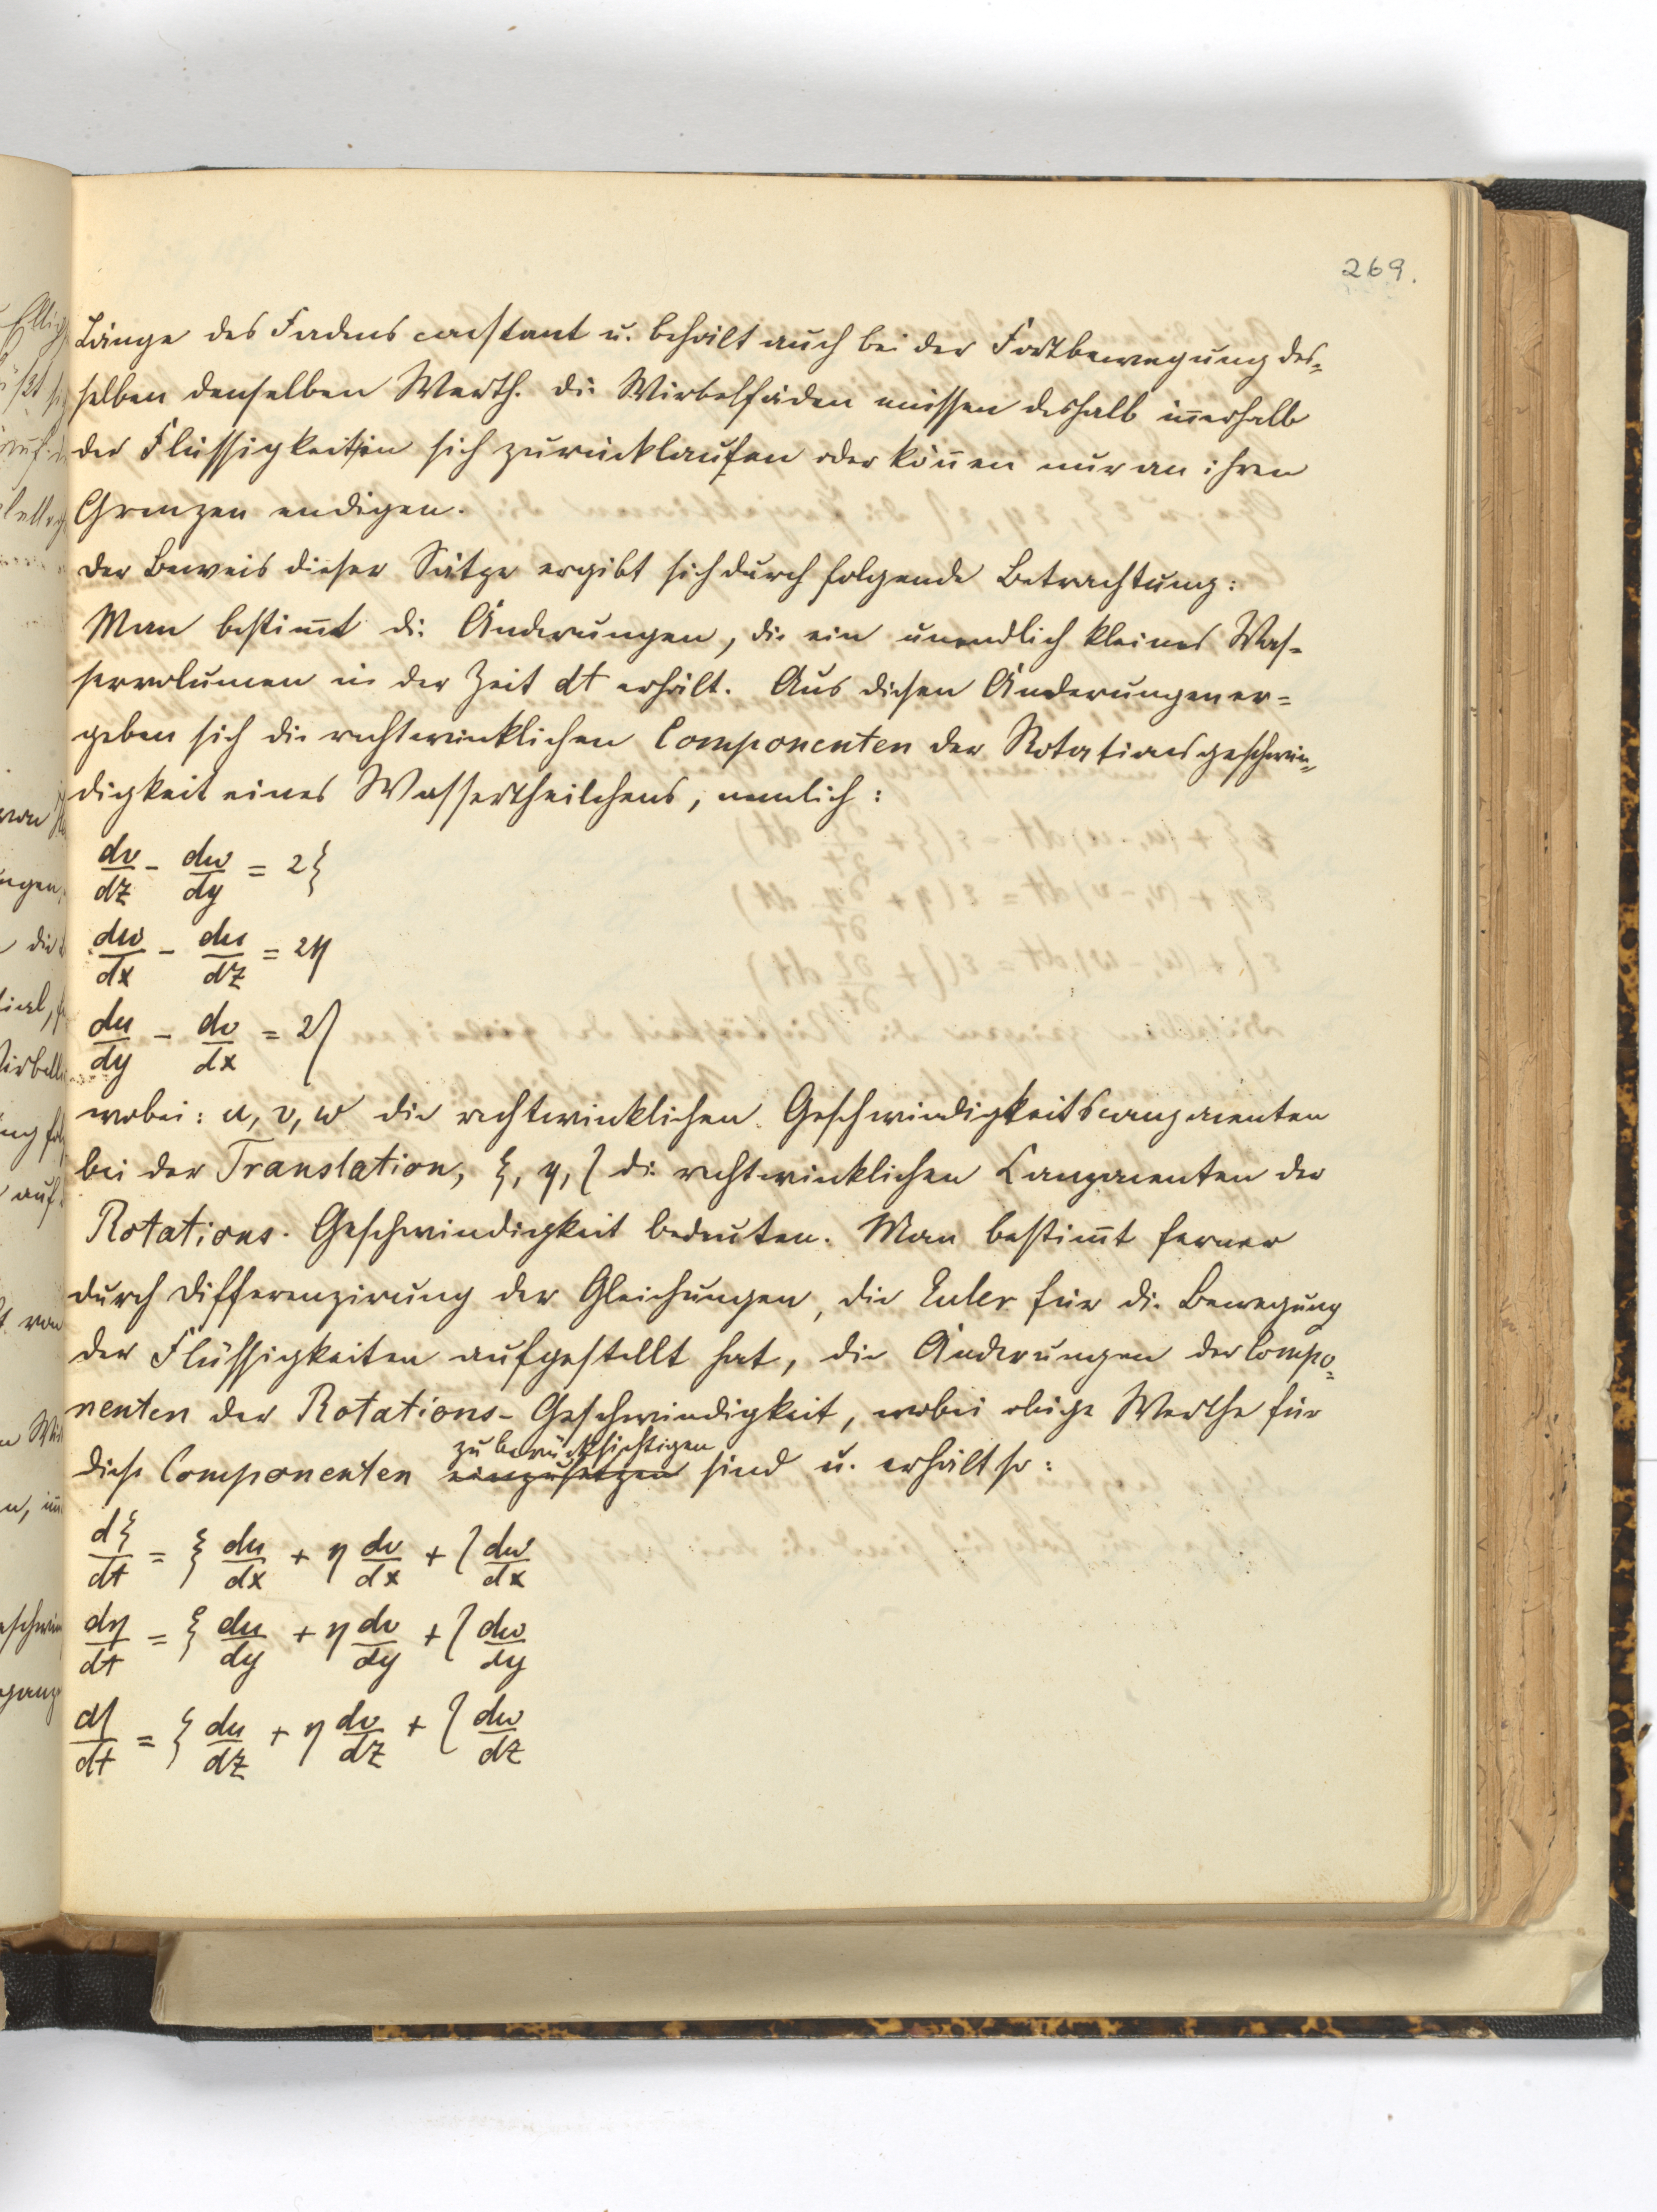 269.
Länge des Fadens constant u. behält auch bei der Fortbewegung des=
selben denselben Werth. Die Wirbelfäden müssen deshalb iñerhalb
der Flüssigkeit in sich zurücklaufen oder köñen nur an ihren
Grenzen endigen.
Der Beweis dieser Sätze ergibt sich durch folgende Betrachtung:
Man bestim̃t die Änderungen, die ein unendlich kleines Was-
servolumen in der Zeit dt erhält. Aus diesen Änderungen er=
geben sich die rechtwinklichen Componenten der Rotationsgeschwin=
digkeit eines Wassertheilchens, nemlich:
dv/dz - dw/dy = 2ξ
dw/dx - du/dz = 2η
du/dy - dv/dx = 2ζ
wobei: u, v, w die rechtwinklichen Geschwindigkeitscomponenten
bei der Translation, ξ, η, ζ die rechtwinklichen Componenten der
Rotations-Geschwindigkeit bedeuten. Man bestim̃t ferner
durch Differenzirung der Gleichungen, die Euler für die Bewegung
der Flüssigkeiten aufgestellt hat, die Änderungen der Compo=
nenten der Rotations-Geschwindigkeit, wobei obige Werthe für
zu berücksichtigen
diese Componenten einzusetzen sind u. erhält so:
dξ/dt = ξ du/dx + η dv/dx + ζ dw/dx
dη/dt = ξ du/dy + η dv/dy + ζ dw/dy
dζ/dt = ξ du/dz + η dv/dz + ζ dw/dz